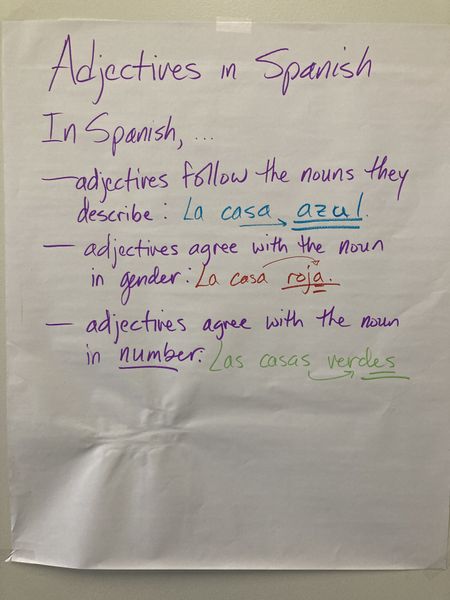 Adjectives in Spanish
In Spanish, ...
—adjectives follow the nouns they
describe: La casa azul.
— adjectives agree with the noun
in gender: La casa roja.
— adjectives agree with the noun
in number: Las casas verdes